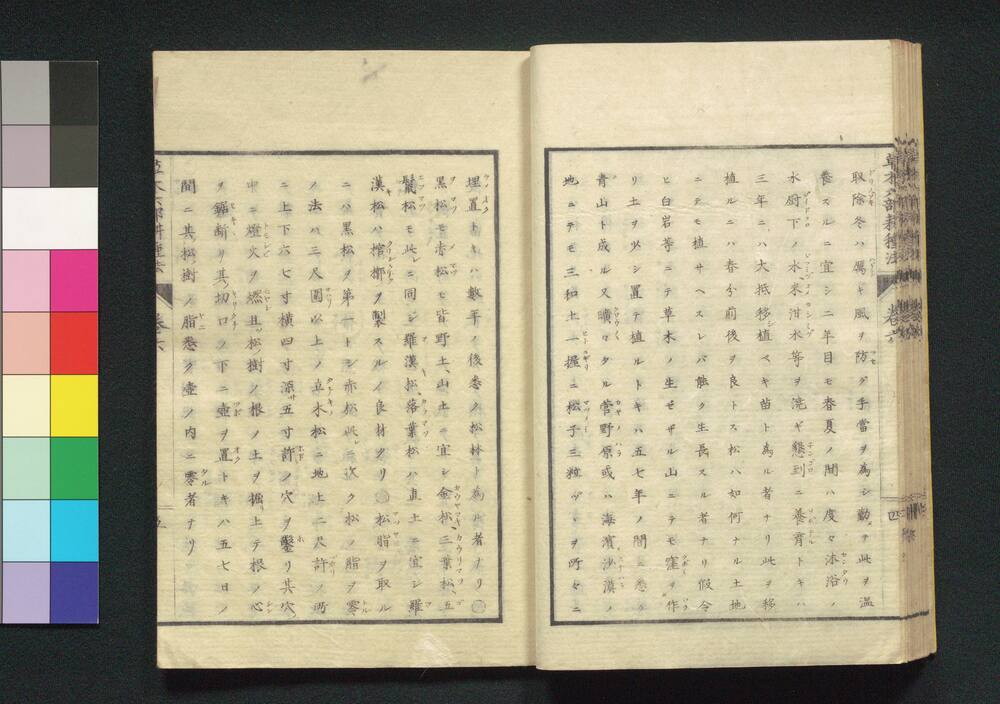 取除冬ハ厲ト風ヲ防グ手當ヲ為シ勤メ此ヲ溫
養スルニ宜シ二年目モ春夏ノ間ハ度々沐浴ノ
水廚下ノ水米泔水等ヲ澆ギ懇到ニ養育トキハ
三年ニハ大抵移シ植ベキ苗ト為ル者ナリ此ヲ移
植ルニハ春分前後ヲ良トス松ハ如何ナル土地
ニテモ植サヘスレバ能ク生長スル者ナリ假令
ヒ白岩等ニテ草木ノ生ゼザル山ニテモ窪ヲ作
リ土ヲ少シ置テ植ルトキハ五七年ノ間ニ悉ク
青山ト成ル又曠ロタル菅野原或ハ海濱沙漠ノ
地ニテモ三和土一握ニ松子三粒ヅヽヲ所々ニ
草木六部耕種法 卷六 四
埋置トキハ數年ノ後悉ク松林ト為ル者ナリ○
黒松モ赤松モ皆野土山土ニ宜シ金松三葉松五
鬣松モ此レニ同ジ羅漢松落葉松ハ真土ニ宜シ羅
漢松ハ棺槨ヲ製スルノ良材ナリ○松脂ヲ取ル
ニハ黒松ヲ第一トシ赤松此レニ次ク松ノ脂ヲ零
ノ法ハ三尺圍以上ノ立木松ニ地上二尺許ノ所
ニ上下六七寸横四寸深サ五寸許ノ穴ヲ鑿リ其穴
中ニ燈火ヲ燃且ツ松樹ノ根ノ土ヲ掘上テ根ノ心
ヲ斫リ其切口ノ下ニ壺ヲ置トキハ五七日ノ
間ニ其松樹ノ脂悉ク壺ノ内ニ零者ナリ
草木六部耕種法 卷六 五